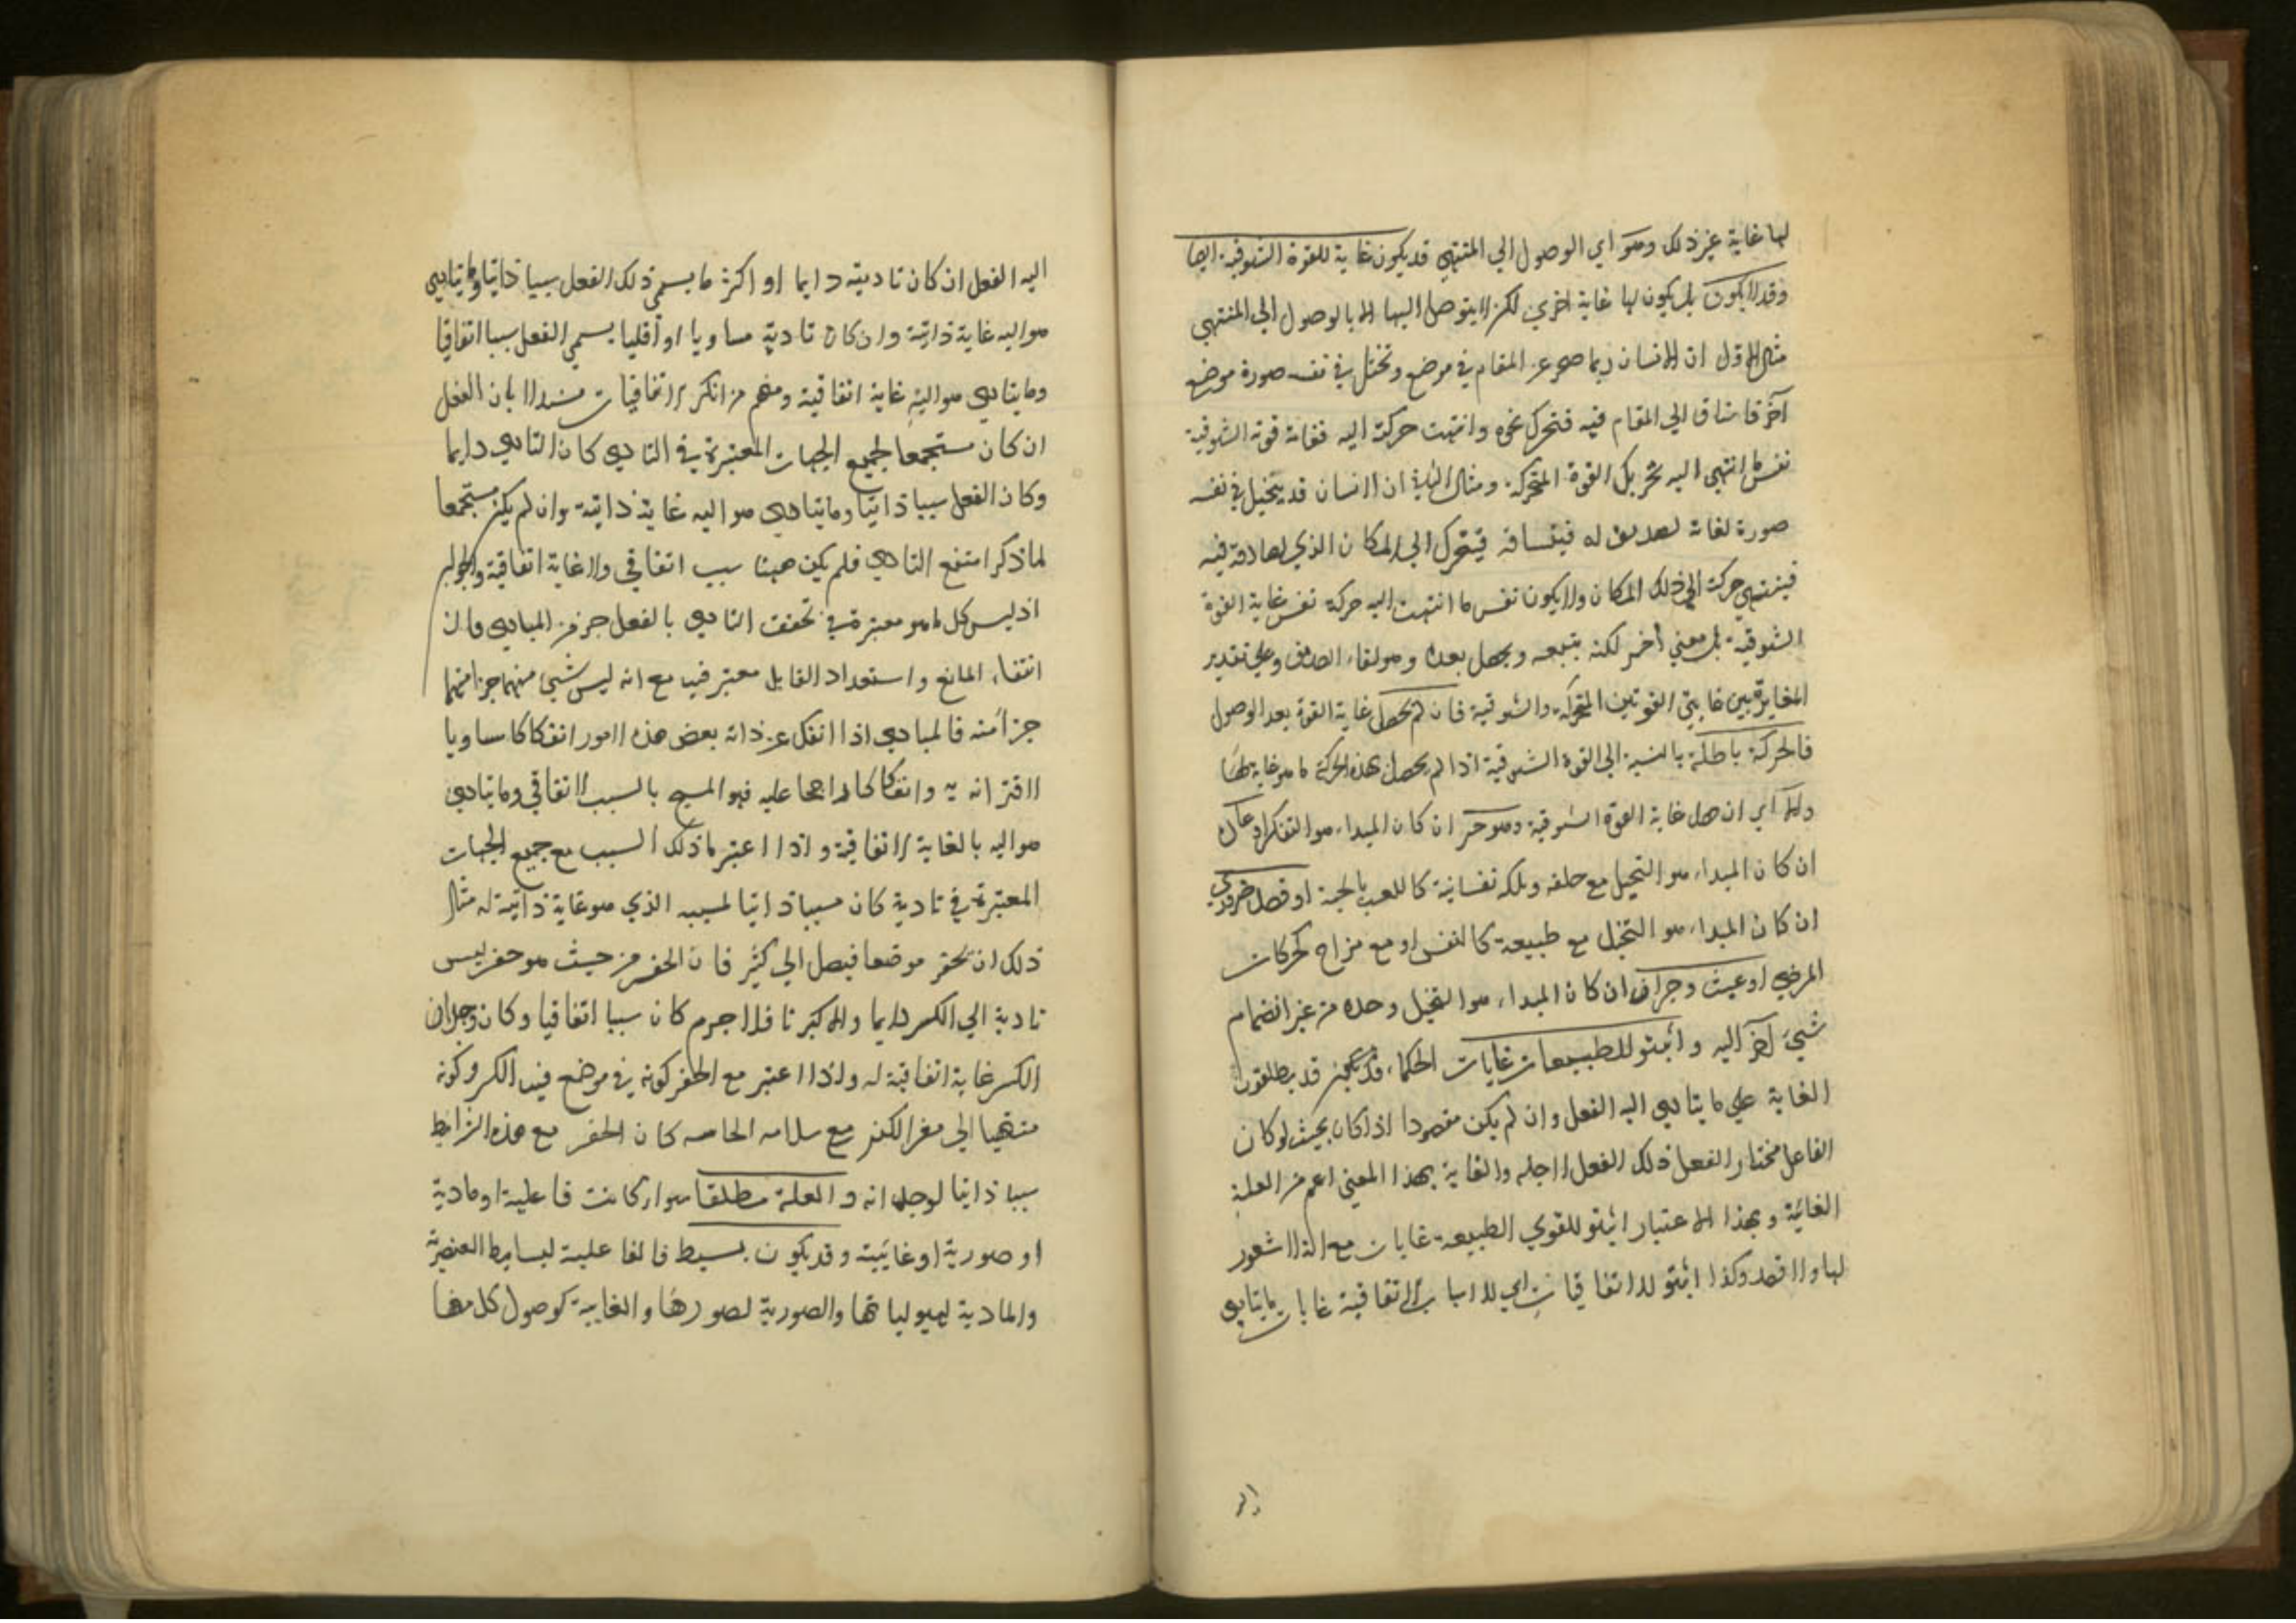 لها غاية غير ذلك وهو اي الوصول الي المنتهي قد يكون غاية للقوة الشوقية ايضا
وقد لا يكون بل يكون لها غاية اخري لكن لا يتوصل اليها الا بالوصول الي المنتهي
مثال الاول ان الانسان ربما ضجر عن المقام في موضع وتخيل في نفسه صورة موضع
آخر فاشتاق الي المقام فيه فتحرك نحوه وانتهت حركته اليه فغاية قوته الشوقية
نفس ما انتهي اليه تحريك القوة المحركة ومثال الثاني ان الانسان قد يتخيل في نفسه
صورة لقائه لصديق له فيشتاقه فيتحرك الي المكان الذي يصادفه فيه
فينتهي حركته الي ذلك المكان ولا يكون نفس ما انتهت اليه حركته نفس غاية القوة
الشوقية بل معني آخر لكنه يتبعه ويحصل بعده وهو لقاء الصديق وعلي تقدير
المغايرة بين غايتي القوتين المحركة والشوقية فان لم يحصل غاية القوة بعد الوصول
فالحركة باطلة بالنسبة الي القوة الشوقية اذا لم يحصل بهذه الحركة ما هو غاية لها
والا اي ان حصل غاية القوة الشوقية وهو خير ان كان المبداء هو التفكر او عادة
ان كان المبداء هو التخيل مع خلقه وملكه نفسانية كاللعب بالحية او قصد ضروري
ان كان المبداء هو التخيل مع طبيعة كالنفس او مع مزاج كحركات
المرضي او عبث وجزاف ان كان المبداء هو التخيل وحده من غير انضمام
شيء آخر اليه واثبتو للطبيعات غايات الحكماء قد يطلقون
الغاية علي ما يتادي اليه الفعل وان لم يكن مقصودا اذا كان بحيث لو كان
الفاعل مختارا لفعل ذلك الفعل لاجله والغاية بهذا المعني اعم من العلة
الغائية وبهذا الاعتبار اثبتو للقوي الطبيعة غايات مع انه لا شعور
لها ولا قصد وكذا اثبتو للاتفاقيات اي للاسباب الاتفاقية غايات ما يتادي
اليه
اليه الفعل ان كان تاديته دايما او اكثر ما يسمي ذلك الفعل سببا ذاتيا وما يتادي
هو اليه غاية ذاتية وان كان تاديه مساويا او اقليا يسمي الفعل سببا اتفاقيا
وما يتادي هو اليه غاية اتفاقية ومنهم من انكر الاتفاقيات مستدلا بان الفعل
ان كان مستجمعا لجميع الجهات المعتبرة في التادي كان التادي دايما
وكان الفعل سببا ذاتيا وما يتادي هو اليه غاية ذاتية وان لم يكن مستجمعا
لما ذكر امتنع التادي فلم يكن هيئا سبب اتفاقي ولا غاية اتفاقية والجواب
اذ ليس كل ما هو معتبرة في تحقق التادي بالفعل جز من المبادي فان
انتفاء المانع واستعداد القابل معتبر فيه مع انه ليس شيء منهما جزا منهما
جزا منه فالمبادي اذا انفك عن ذاته بعض هذه الامور انفكاكا مساويا
لاقترانه به وانفكاكا راجحا عليه فهو المسمي بالسبب الاتفاقي وما يتادي
هو اليه بالغاية الاتفاقية واذا اعتبر ما ذلك السبب مع جميع الجهات
المعتبرة في تادية كان مسببا ذاتيا لمسببه الذي هو غاية ذاتية له مثال
ذلك ان يحفر موضعا فيصل الي كنز فان الحفر من حيث هو حفر ليس
تادية الي الكنز دايما والا كثرنا فلا جرم كان سببا اتفاقيا وكان وجدان
الكنز غاية اتفاقية له واذا اعتبر مع الحفر كونه في موضع فيه الكنز وكونه
منتهيا الي مقر الكنز مع سلامه الحاسه كان الحفر مع هذه الشرايط
سببا ذاتيا لوجدانه والعلة مطلقا سواء كانت فاعلية او مادية
او صورية او غائية وقد يكون بسيط فالفاعلية لبسايط العنصرية
والمادية لهيولياتها والصورية لصورها والغايية كوصول كل منها